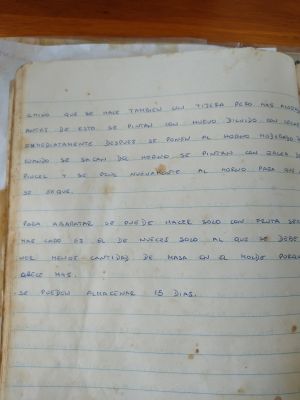 QUE SE HACE TAMBIEN UN TIJERA PERO MAS
ANTES DE ESTO SE PINTAN CON HUEVO DILUIDO CON
INMEDIATAMENTE DESPUES SE PONEN AL HORNO MODERADO.
CUANDO SE SACAN DEL HORNO SE PINTAN CON
PINCEL Y SE NUEVAMENTE AL HORNO PARA QUE
SE SEQUE.
PARA ABARATAR SE PUEDE HACER SOLO CON FRUTA
MAS CARO ES EL DE NUECES SOLO AL QUE SE DEBE
MENOS CANTIDAD DE MASA EN EL MOLDE PORQUE
CRECE MAS.
SE PUEDEN ALMACENAR 15 DIAS.